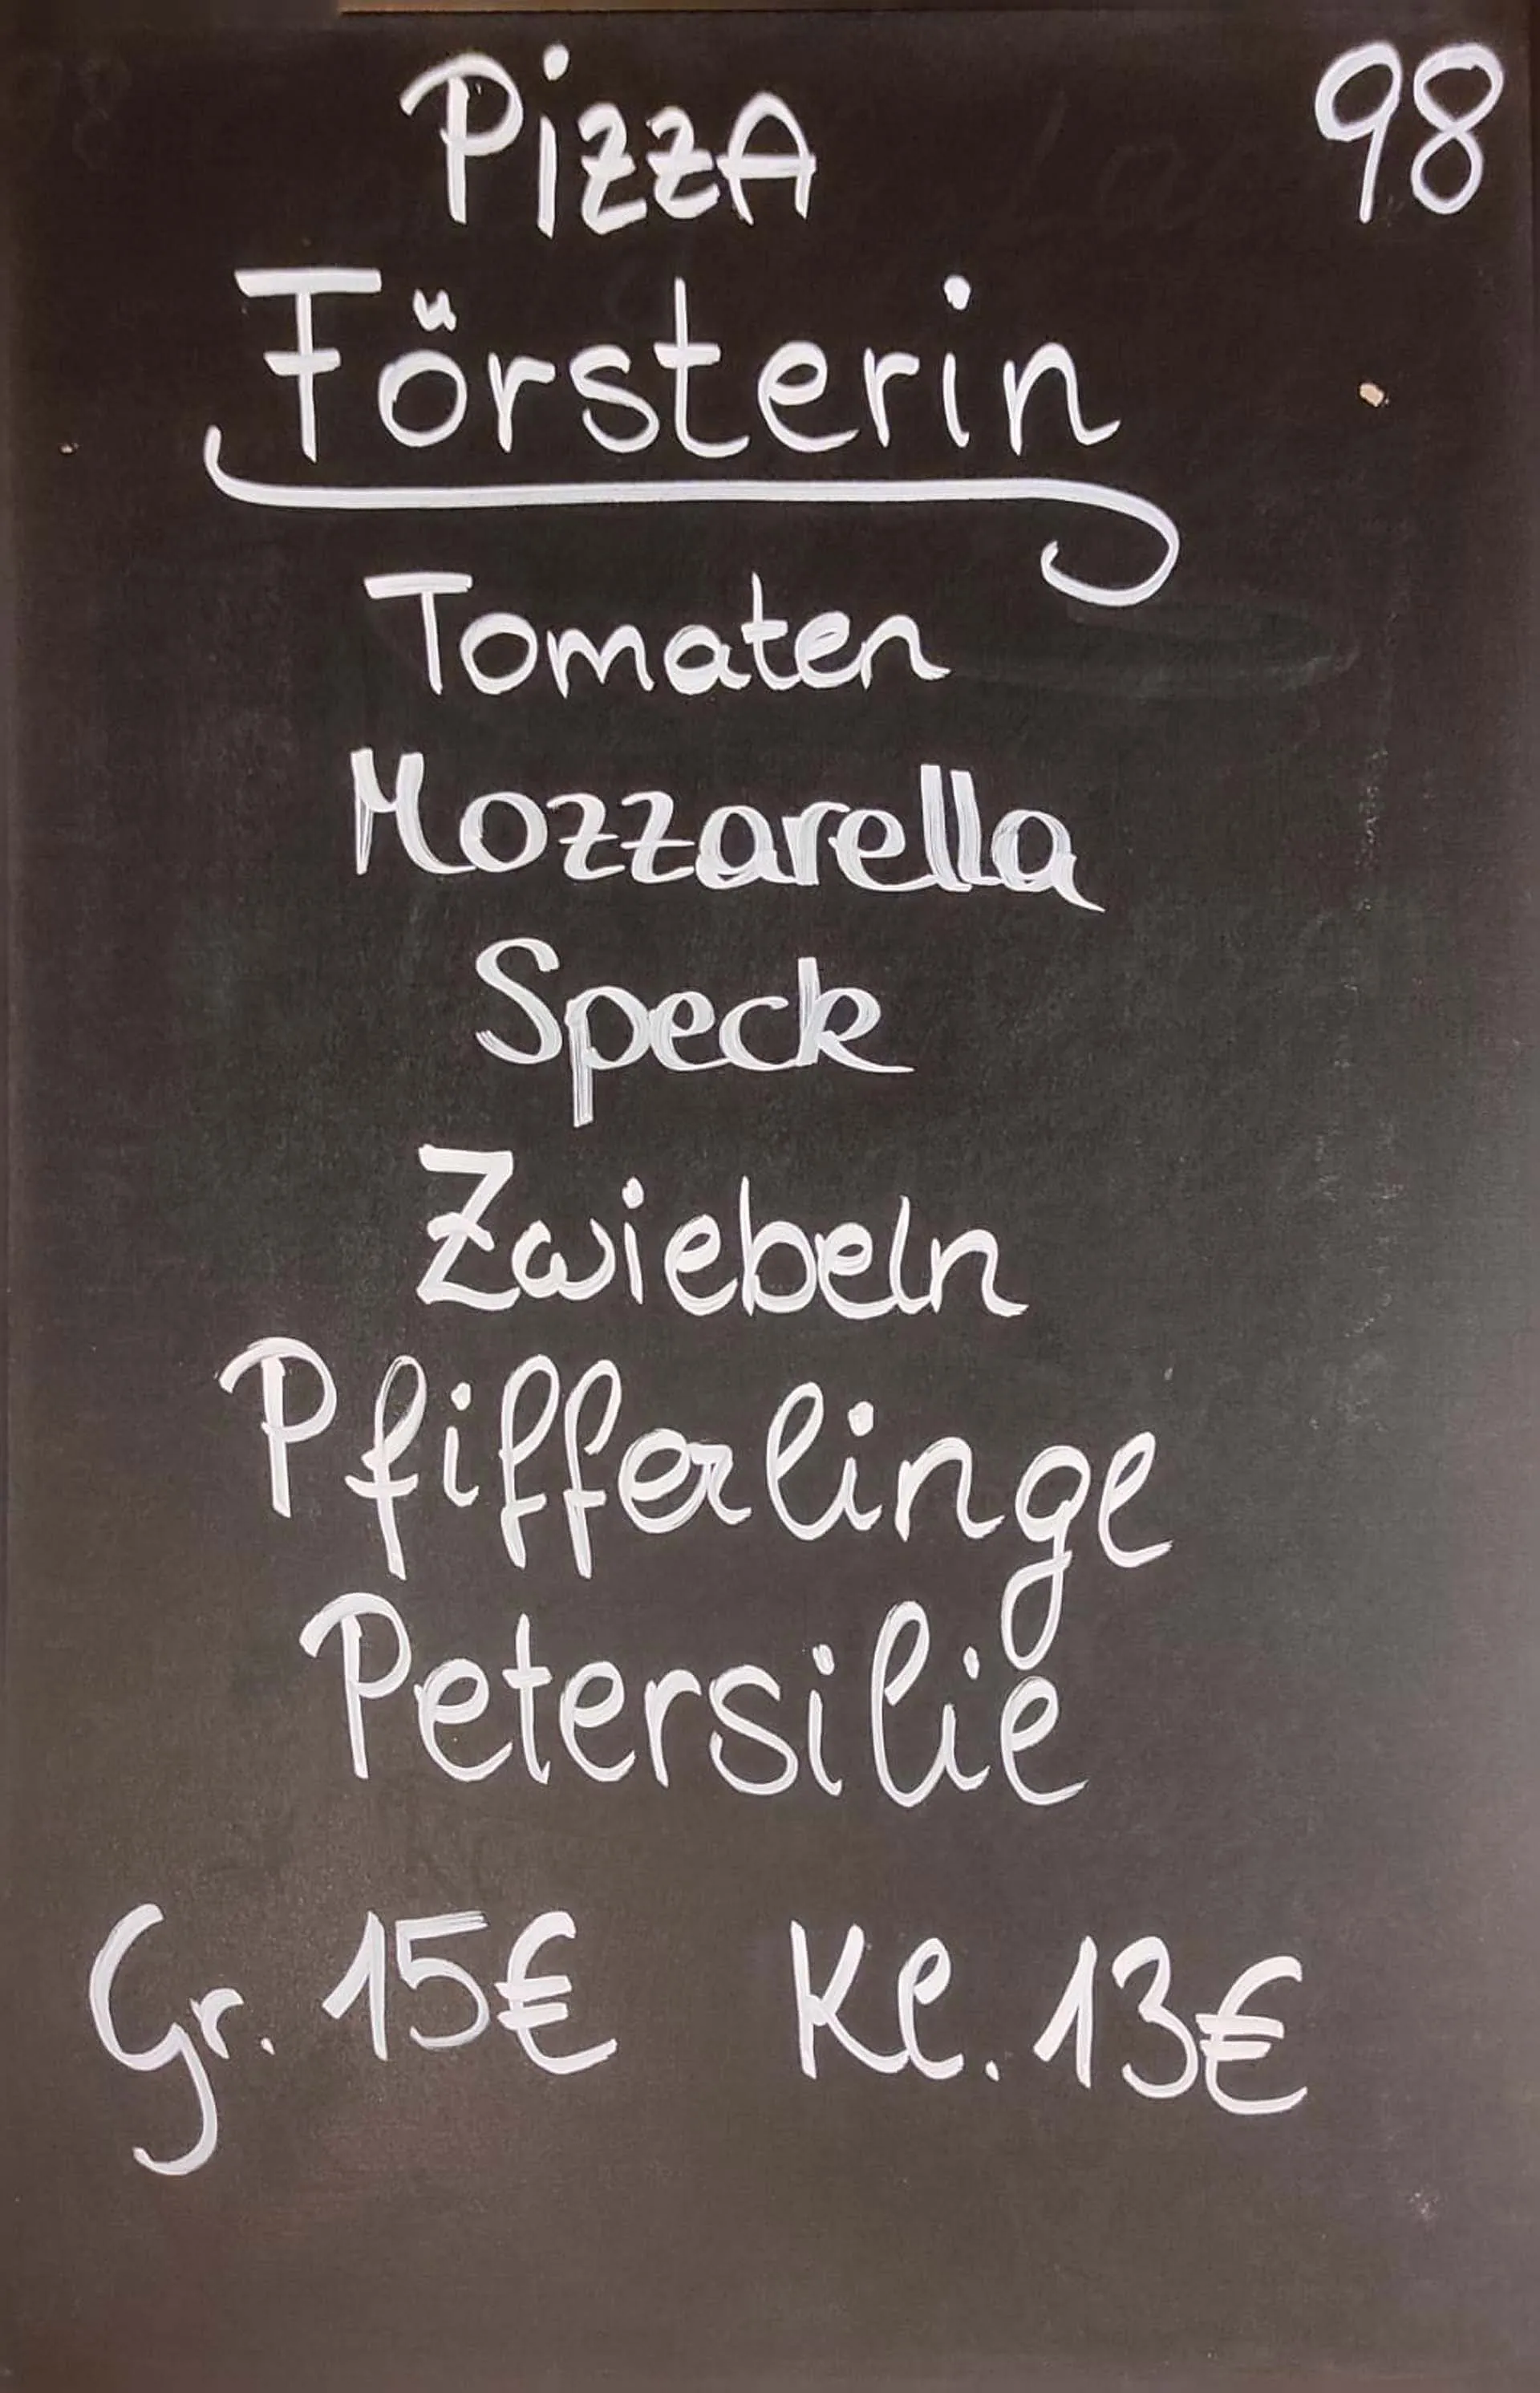 PizzA 98
Försterin
Tomaten
Mozzarella
Speck
Zwiebeln
Pfifferlinge
Petersilie
Gr. 15€ Kl. 13€